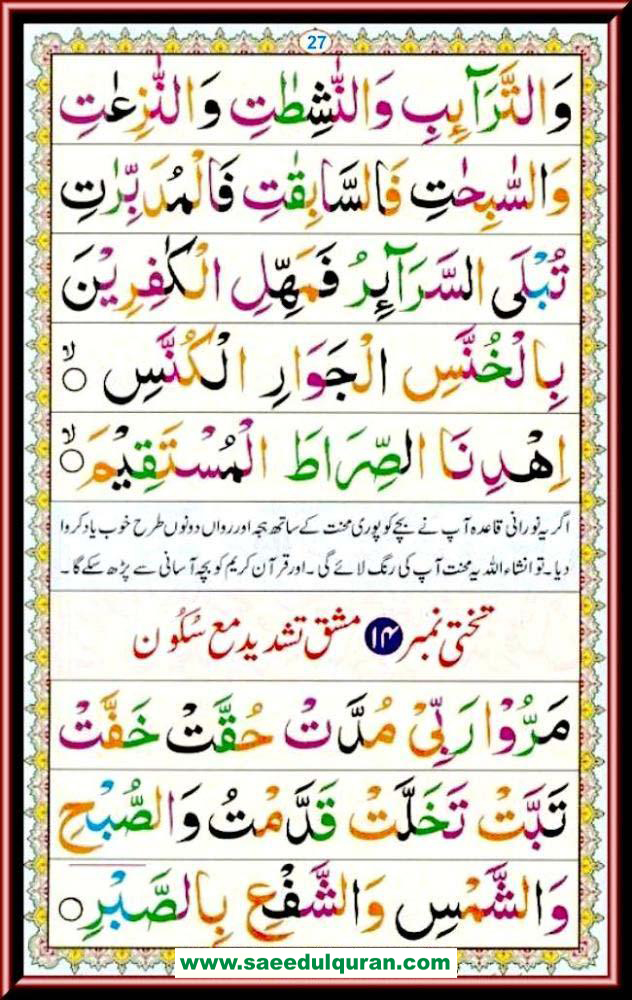 27
وَالتَّرَآئِبِ وَالنّٰشِطٰتِ وَالنّٰزِعٰتِ
وَالسّٰبِحٰتِ فَالسَّابِقٰتِ فَالْمُدَبِّرٰتِ
تُبْلَى السَّرَآئِرُ فَمَهِّلِ الْكٰفِرِيْنَ
بِالْخُنَّسِ الْجَوَارِ الْكُنَّسِ ۙ
اِهْدِنَا الصِّرَاطَ الْمُسْتَقِيْمَ ۙ
اگر یہ نورانی قاعدہ آپ نے بچے کو پوری محنت کے ساتھ ہجہ اور رواں دونوں طرح خوب یاد کروا
دیا۔ تو انشاء اللہ یہ محنت آپ کی رنگ لائے گی۔ اور قرآن کریم کو بچہ آسانی سے پڑھ سکے گا۔
تختی نمبر ۱۴ مشق تشدید مع سکُون
مَرُّوْا رَبِّىْ مُدَّتْ حُقَّتْ خَفَّتْ
تَبَّتْ تَخَلَّتْ قَدَّمْتُ وَالصُّبْحِ
وَالشَّمْسِ وَالشَّفْعِ بِالصَّبْرِ ○
www.saeedulquran.com